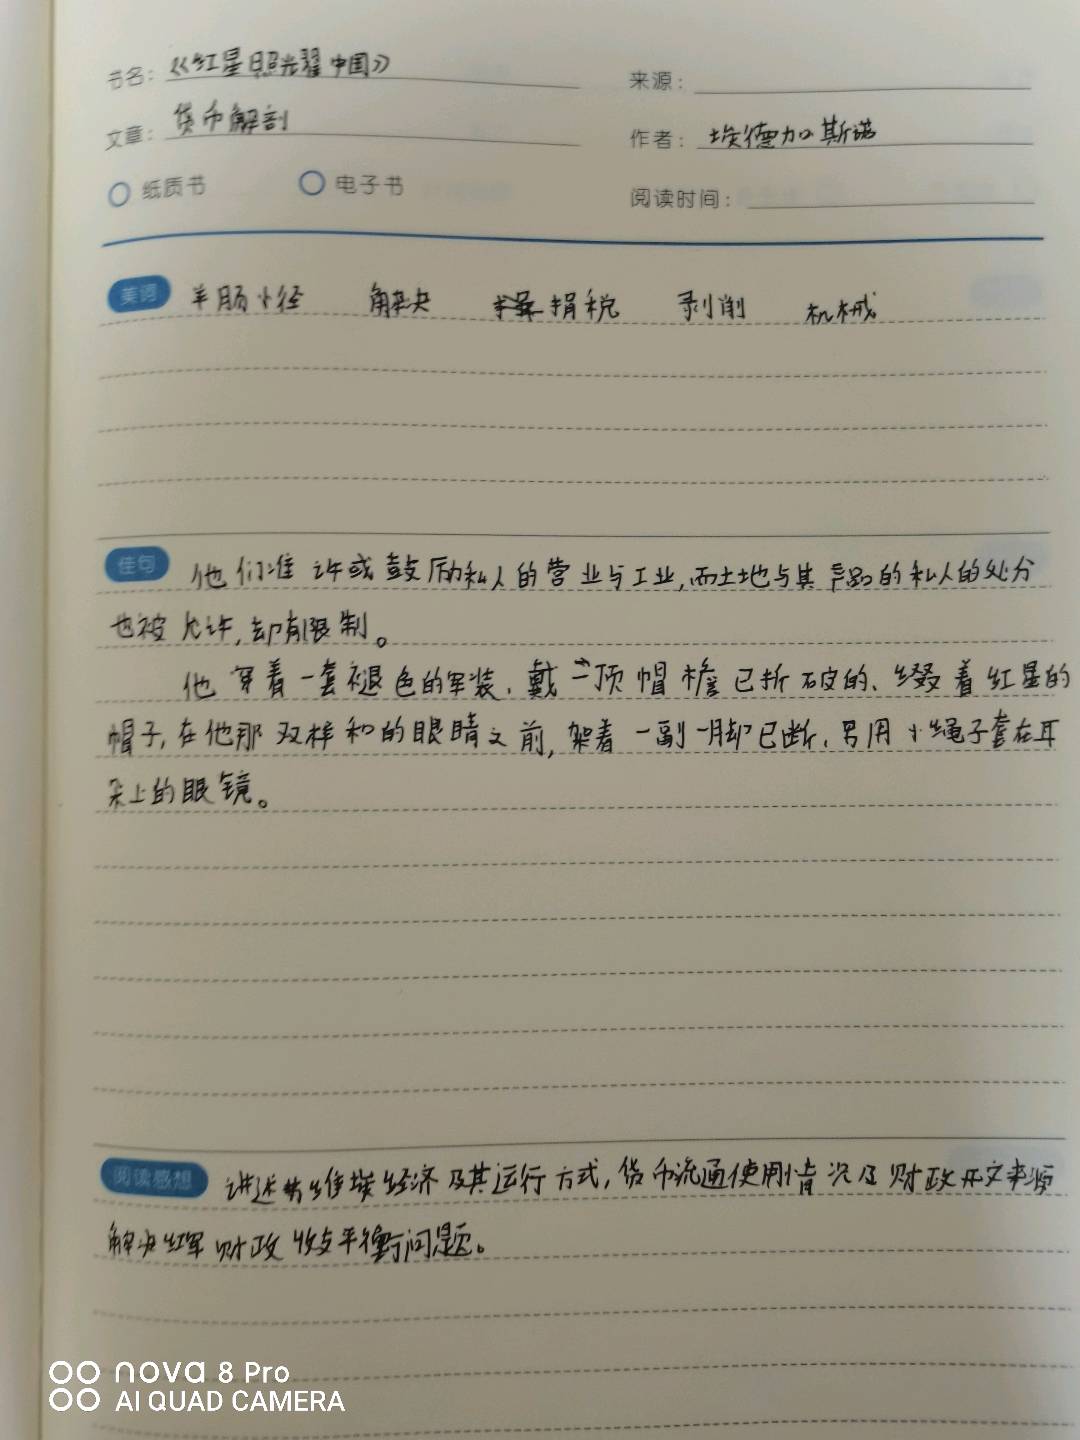 书名：《红星照光耀中国》 来源：
文章：货币解剖 作者：埃德加斯诺
纸质书 电子书 阅读时间：
美词 羊肠小径 解决 捐税 剥削 机械
佳句 他们准许或鼓励私人的营业与工业，而土地与其产品的私人的处分
也被允许，却有限制。
他穿着一套褪色的军装、戴一顶帽檐已折破的、缀着红星的
帽子，在他那双祥和的眼睛之前，架着一副一脚已断、另用小绳子套在耳
朵上的眼镜。
阅读感想 讲述苏维埃经济及其运行方式，货币流通使用情况及财政开支来源
解决红军财政收支平衡问题。
nova 8 Pro
AI QUAD CAMERA